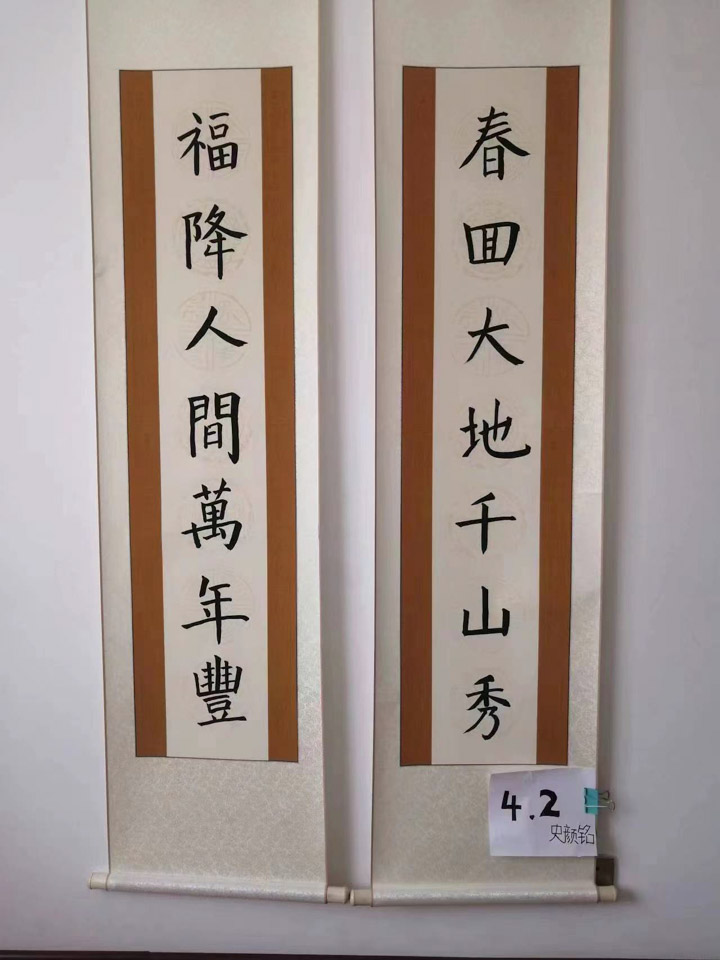 春回大地千山秀
福降人間萬年豐
4.2
史颜铭